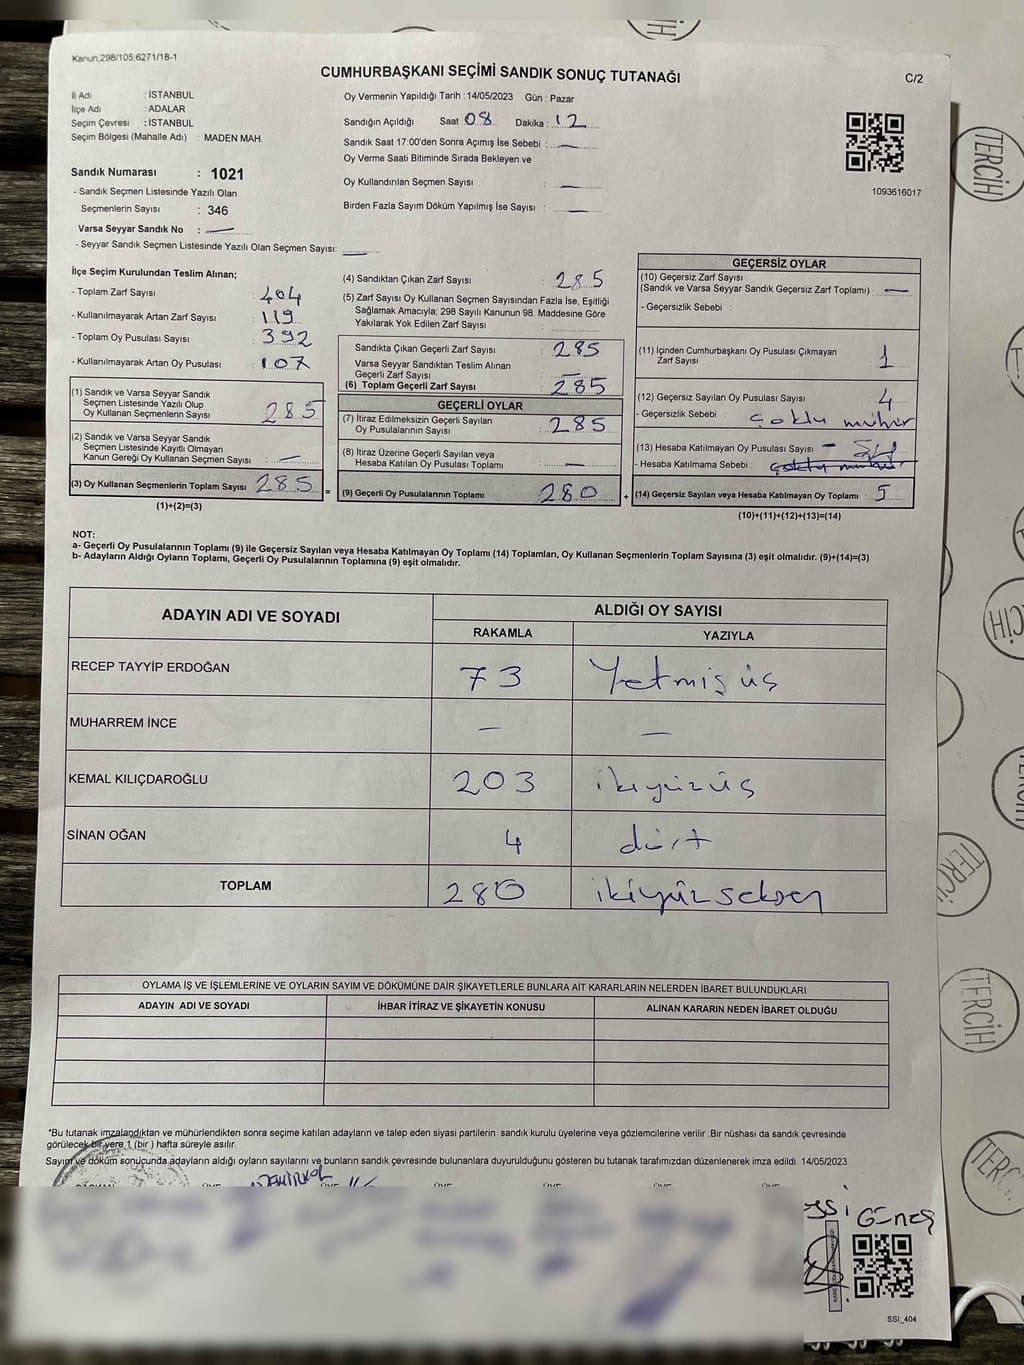 Kanun;298/105;6271/18-1
CUMHURBAŞKANI SEÇİMİ SANDIK SONUÇ TUTANAĞI
C/2
İl Adı : İSTANBUL
İlçe Adı : ADALAR
Seçim Çevresi : İSTANBUL
Seçim Bölgesi (Mahalle Adı) : MADEN MAH.
Sandık Numarası : 1021
- Sandık Seçmen Listesinde Yazılı Olan
Seçmenlerin Sayısı : 346
Varsa Seyyar Sandık No : —
- Seyyar Sandık Seçmen Listesinde Yazılı Olan Seçmen Sayısı: —
Oy Vermenin Yapıldığı Tarih : 14/05/2023 Gün : Pazar
Sandığın Açıldığı Saat 08 Dakika : 12
Sandık Saat 17:00'den Sonra Açımış İse Sebebi : —
Oy Verme Saati Bitiminde Sırada Bekleyen ve
Oy Kullandırılan Seçmen Sayısı : —
Birden Fazla Sayım Döküm Yapılmış İse Sayısı : —
1093616017
İlçe Seçim Kurulundan Teslim Alınan;
- Toplam Zarf Sayısı : 404
- Kullanılmayarak Artan Zarf Sayısı : 119
- Toplam Oy Pusulası Sayısı : 392
- Kullanılmayarak Artan Oy Pusulası : 107
(1) Sandık ve Varsa Seyyar Sandık
Seçmen Listesinde Yazılı Olup
Oy Kullanan Seçmenlerin Sayısı : 285
(2) Sandık ve Varsa Seyyar Sandık
Seçmen Listesinde Kayıtlı Olmayan
Kanun Gereği Oy Kullanan Seçmen Sayısı : —
(3) Oy Kullanan Seçmenlerin Toplam Sayısı : 285
(1)+(2)=(3)
=
(4) Sandıktan Çıkan Zarf Sayısı : 285
(5) Zarf Sayısı Oy Kullanan Seçmen Sayısından Fazla İse, Eşitliği
Sağlamak Amacıyla; 298 Sayılı Kanunun 98. Maddesine Göre
Yakılarak Yok Edilen Zarf Sayısı :
Sandıkta Çıkan Geçerli Zarf Sayısı : 285
Varsa Seyyar Sandıktan Teslim Alınan
Geçerli Zarf Sayısı : —
(6) Toplam Geçerli Zarf Sayısı : 285
GEÇERLİ OYLAR
(7) İtiraz Edilmeksizin Geçerli Sayılan
Oy Pusulalarının Sayısı : 285
(8) İtiraz Üzerine Geçerli Sayılan veya
Hesaba Katılan Oy Pusulası Toplamı : —
(9) Geçerli Oy Pusulalarının Toplamı 280
+
GEÇERSİZ OYLAR
(10) Geçersiz Zarf Sayısı
(Sandık ve Varsa Seyyar Sandık Geçersiz Zarf Toplamı) : —
- Geçersizlik Sebebi :
(11) İçinden Cumhurbaşkanı Oy Pusulası Çıkmayan
Zarf Sayısı : 1
(12) Geçersiz Sayılan Oy Pusulası Sayısı : 4
- Geçersizlik Sebebi : çoklu mühür
(13) Hesaba Katılmayan Oy Pusulası Sayısı : —
- Hesaba Katılmama Sebebi : çoklu mühür
(14) Geçersiz Sayılan veya Hesaba Katılmayan Oy Toplamı : 5
(10)+(11)+(12)+(13)=(14)
NOT:
a- Geçerli Oy Pusulalarının Toplamı (9) ile Geçersiz Sayılan veya Hesaba Katılmayan Oy Toplamı (14) Toplamları, Oy Kullanan Seçmenlerin Toplam Sayısına (3) eşit olmalıdır. (9)+(14)=(3)
b- Adayların Aldığı Oyların Toplamı, Geçerli Oy Pusulalarının Toplamına (9) eşit olmalıdır.
ADAYIN ADI VE SOYADI
ALDIĞI OY SAYISI
RAKAMLA YAZIYLA
RECEP TAYYİP ERDOĞAN 73 Yetmiş üç
MUHARREM İNCE — —
KEMAL KILIÇDAROĞLU 203 ikiyüzüç
SİNAN OĞAN 4 dört
TOPLAM 280 ikiyüzseksen
OYLAMA İŞ VE İŞLEMLERİNE VE OYLARIN SAYIM VE DÖKÜMÜNE DAİR ŞİKAYETLERLE BUNLARA AİT KARARLARIN NELERDEN İBARET BULUNDUKLARI
ADAYIN ADI VE SOYADI İHBAR İTİRAZ VE ŞİKAYETİN KONUSU ALINAN KARARIN NEDEN İBARET OLDUĞU
*Bu tutanak imzalandıktan ve mühürlendikten sonra seçime katılan adayların ve talep eden siyasi partilerin sandık kurulu üyelerine veya gözlemcilerine verilir .Bir nüshası da sandık çevresinde
görülecek bir yere 1 (bir ) hafta süreyle asılır.
Sayım ve döküm sonucunda adayların aldığı oyların sayılarını ve bunların sandık çevresinde bulunanlara duyurulduğunu gösteren bu tutanak tarafımızdan düzenlenerek imza edildi. 14/05/2023
DEMİRKOL
Güneş
SSI_404
TERCİH
TERCİH
TERCİH